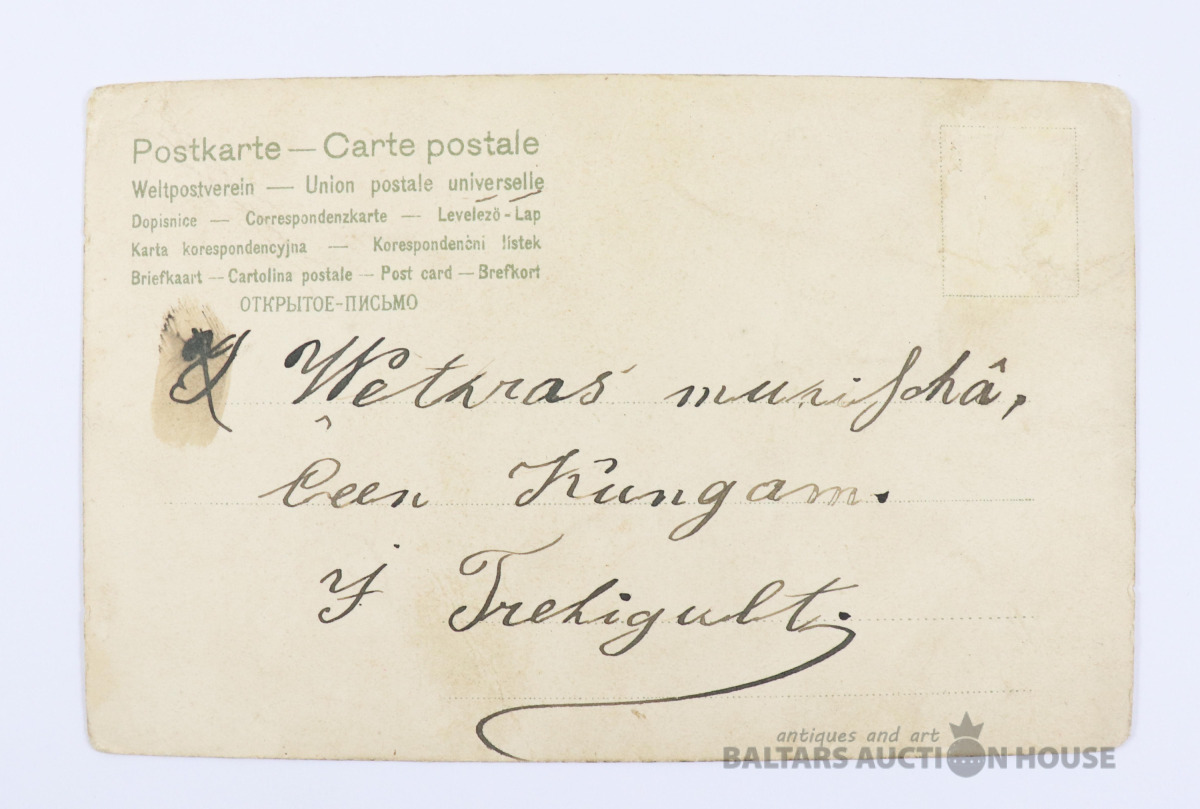 Postkarte — Carte postale
Weltpostverein — Union postale universelle
Dopisnice — Correspondenzkarte — Levelező-Lap
Karta korespondencyjna — Korespondenční lístek
Briefkaart — Cartolina postale — Post card — Brefkort
ОТКРЫТОЕ-ПИСЬМО
Wetkras muhischâ,
Ceen Kungam.
J Trehigult.
antiques and art
BALTARS AUCTION HOUSE